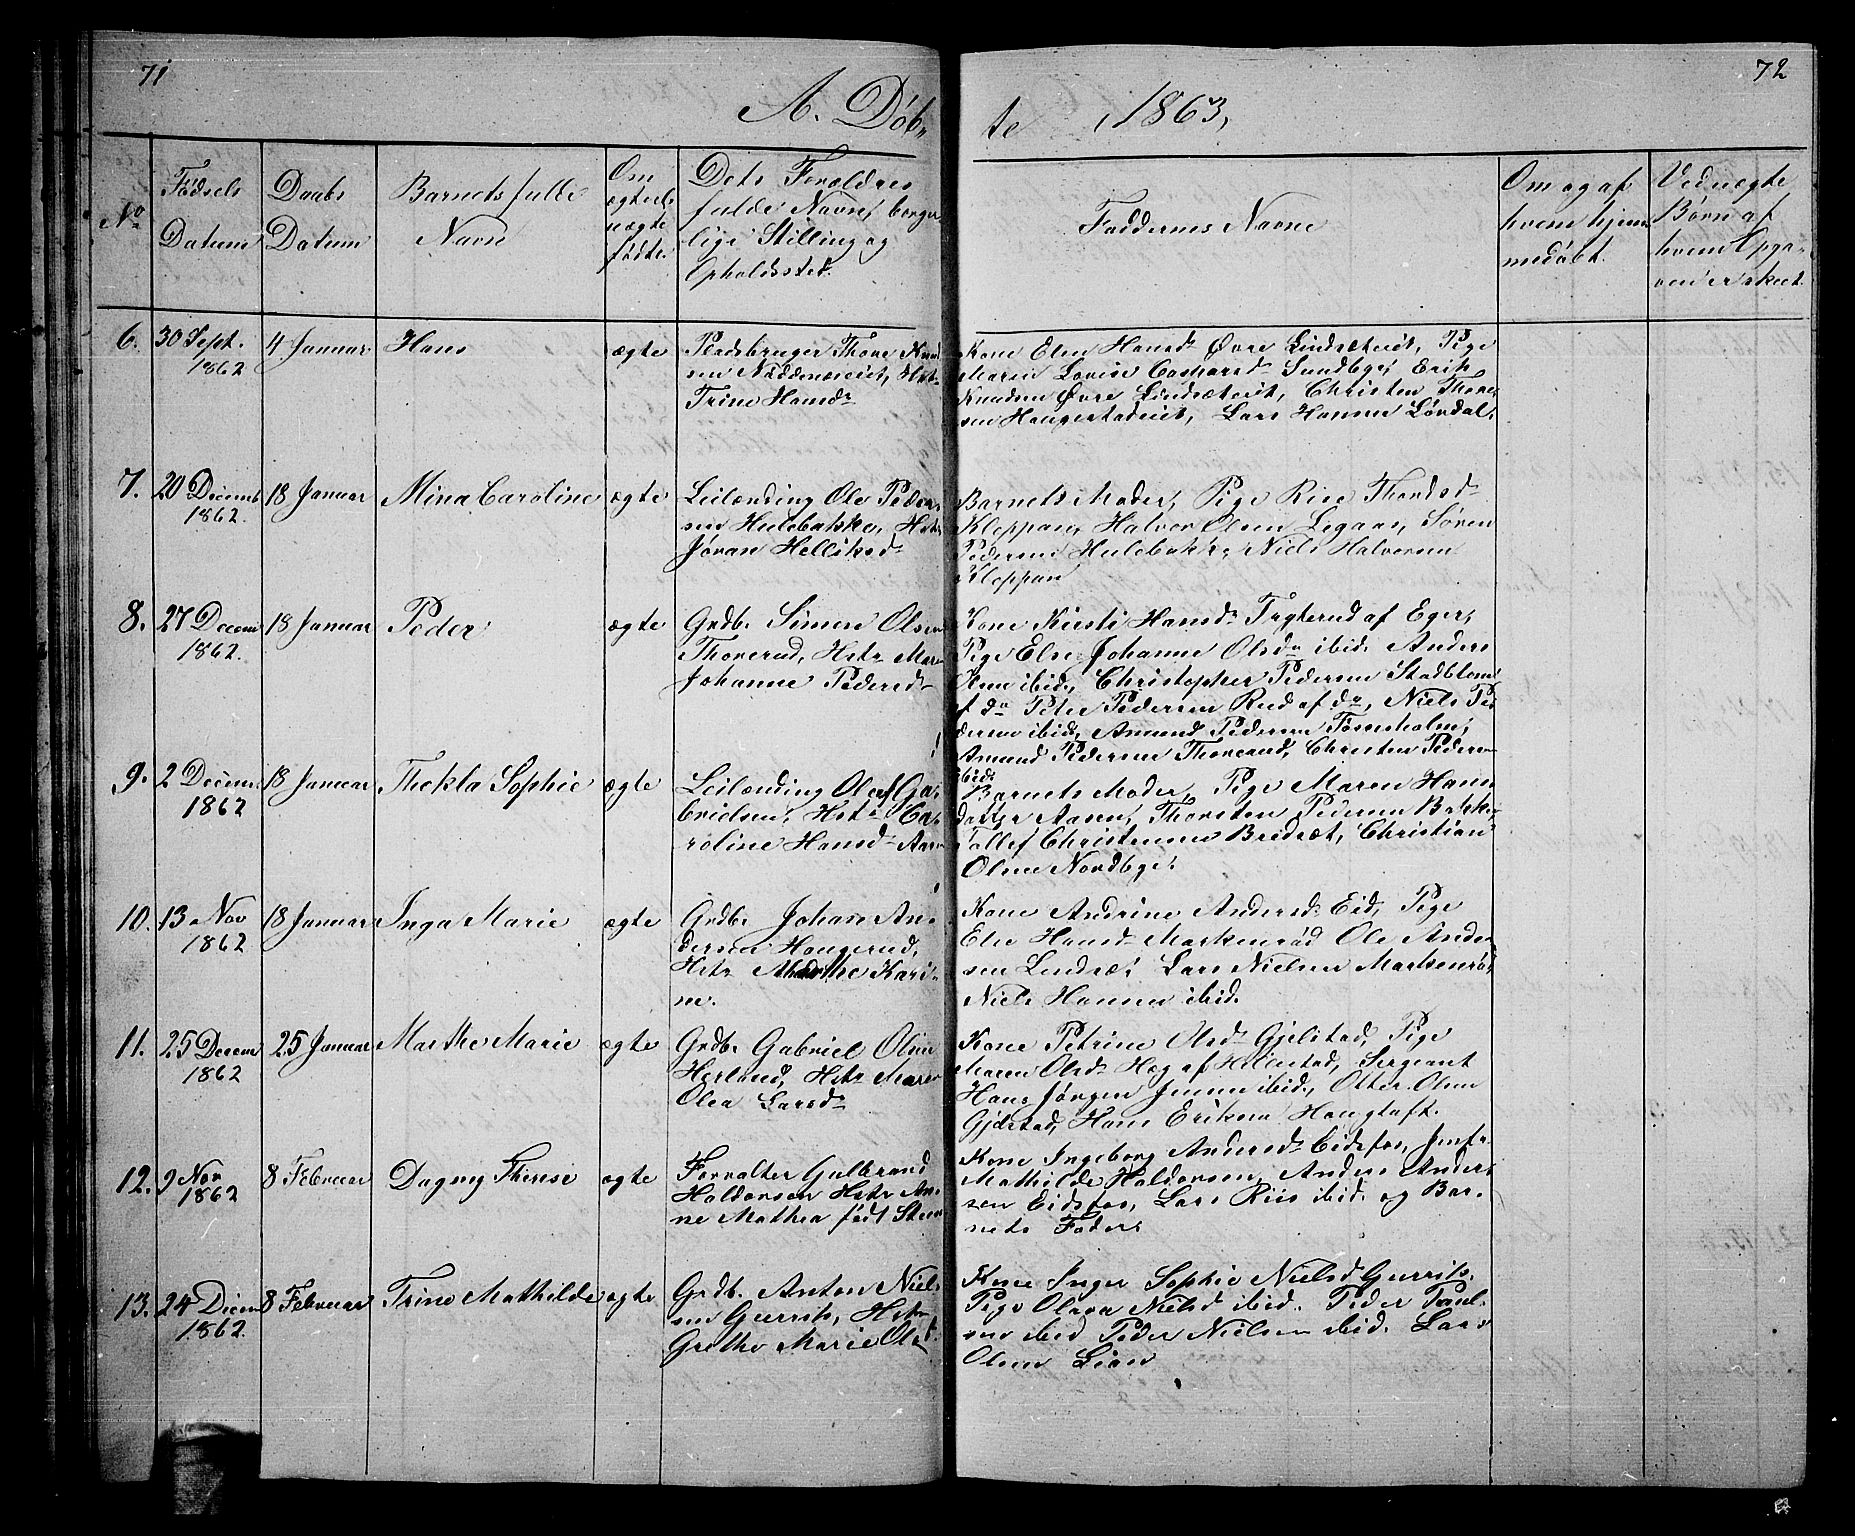 71
72
A. Døb-
te 1863,
No
Fødsels
Datum
Daabs
Datum
Barnets fulle
Navn
Om
ægte el.
uægte
født.
Dets Forældres
fulde Navne, borger
lige Stilling og
Opholdssted.
Faddernes Navne
Om og af
hvem hjem
medøbt.
Ved uægte
Børn af
hvem Opga-
ven er skeet.
6. 30 Sept. 1862
4 Januar
Hans
ægte
Pladsbruger Thore Knud
sen Hst
Trine Hansdr
Kone Elen Hansd Øvre Lindsæteiet, Pige
Maren Lovise Caspersd Sundbye, Erik
Knudsen Øvre Lindsæteiet, Christen Thore
sen Haugestadeiet, Lars Hansen Løvdal.
7. 20 Decemb 1862.
18 Januar
Mina Caroline
ægte
Leilænding Ole Peder
sen Hulebakke, Hst
Jøran Helliksd
Barnets Moder, Pige Thordsd
Kleppan, Halvor Olsen Legaar, Søren
Pedersen Hulebakke, Niels Halvorsen
Kleppan
8. 27 Decem 1862.
18 Januar
Peder
ægte
Grdb. Simen Olsen
Thorerud, Hstr Maren
Johanne Pedersd
Kone Kirsti Hansd af Eger,
Pige Else Johanne Olsdr ibid. Anders
Olsen ibid, Christopher Pedersen
af do Peter Pedersen Rud af do, Niels Pe
dersen ibid, Amund Pedersen Fossesholm,
Amund Pedersen Thorerud, Christen Pedersen
ibid.
9. 2 Decem 1862
18 Januar
Thekla Sophie
ægte
Leilænding Oluf Ga-
brielsen, Hstr Ca-
roline Hansd Aasen
Barnets Moder, Pige Maren Hans
datter Aasen, Thorsten Pedersen Bakke
Tollef Christensen Bredsæt, Christian
Olsen Nordbye.
10. 13 Nov 1862
18 Januar
Inga Marie
ægte
Grdb. Johan An-
dersen Haugerud,
Hstr Kari-
ne.
Kone Andrine Andersd Eid, Pige
Else Hansd Markenrød Ole Ander
sen Lindsæ, Lars Nielsen Markenrø
Niels Hansen ibid.
11. 25 Decem 1862
25 Januar
Marthe Marie
ægte
Grdb. Gabriel Olsen
Herland, Hstr Maren
Olea Larsd
Kone Petrine Olsd Gjelstad, Pige
Maren Olsd Hæg af Hillestad, Sergeant
Hans Jørgen Jensen ibid., Otter Olsen
Gjelstad, Hans Eriksen Haugtaft.
12. 9 Nov 1862
8 Februar
Dagny Therese
ægte
Forvalter Gulbrand
Haldorsen Hstr An-
ne Mathea født Steen
Kone Ingeborg Andersd Eidsfos, Jmfr.
Mathilde Haldorsen, Anders Anders
sen Eidsfos, Lars Riis ibid. og Bar-
nets Fader.
13. 24 Decem 1862.
8 Februar
Trine Mathilde
ægte
Grdb. Anton Niel-
sen Gurrik, Hstr
Grethe Marie Olsd.
Kone Inger Sophie Nielsd Gurrik.
Pige Olava Nielsd ibid. Peder Paul-
sen ibid Peder Nielsen ibid. Lars
Olsen Lian